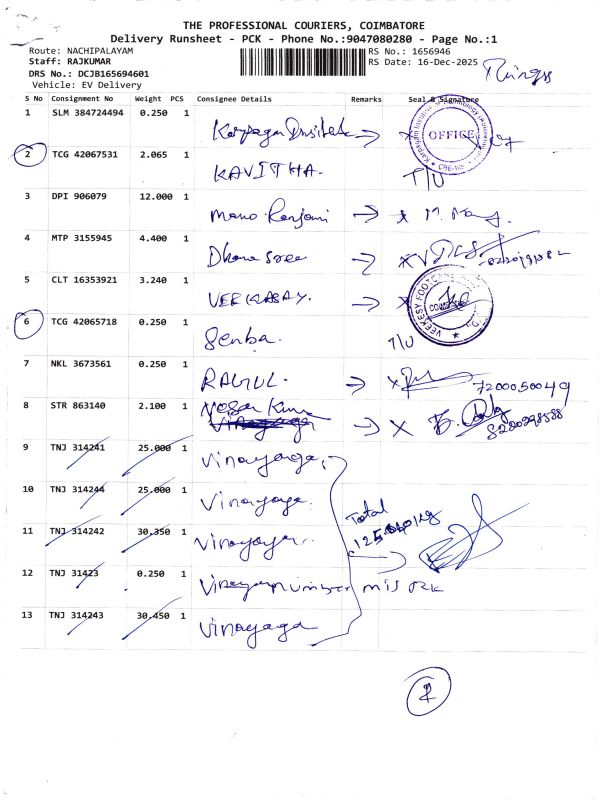 THE PROFESSIONAL COURIERS, COIMBATORE
Delivery Runsheet - PCK - Phone No.:9047080280 - Page No.:1
Route: NACHIPALAYAM
RS No.: 1656946
Staff: RAJKUMAR
RS Date: 16-Dec-2025
DRS No.: DCJB165694601
Vehicle: EV Delivery
S No Consignment No Weight PCS Consignee Details Remarks Seal & Signature
1 SLM 384724494 0.250 1 Karpagam OFFICE
2 TCG 42067531 2.065 1 KAVITHA. T/U
3 DPI 906079 12.000 1 Mano Ranjani
4 MTP 3155945 4.400 1 Dhana sree
5 CLT 16353921 3.240 1 VEEKASAY.
6 TCG 42065718 0.250 1 Senba. T/U
7 NKL 3673561 0.250 1 RAGUL. 7200050049
8 STR 863140 2.100 1
9 TNJ 314241 25.000 1 Vinayaga,
10 TNJ 314244 25.000 1 Vinayaga.
11 TNJ 314242 30.350 1 Vinayaga.
Total
12 TNJ 31423 0.250 1
13 TNJ 314243 30.450 1 Vinayaga
2